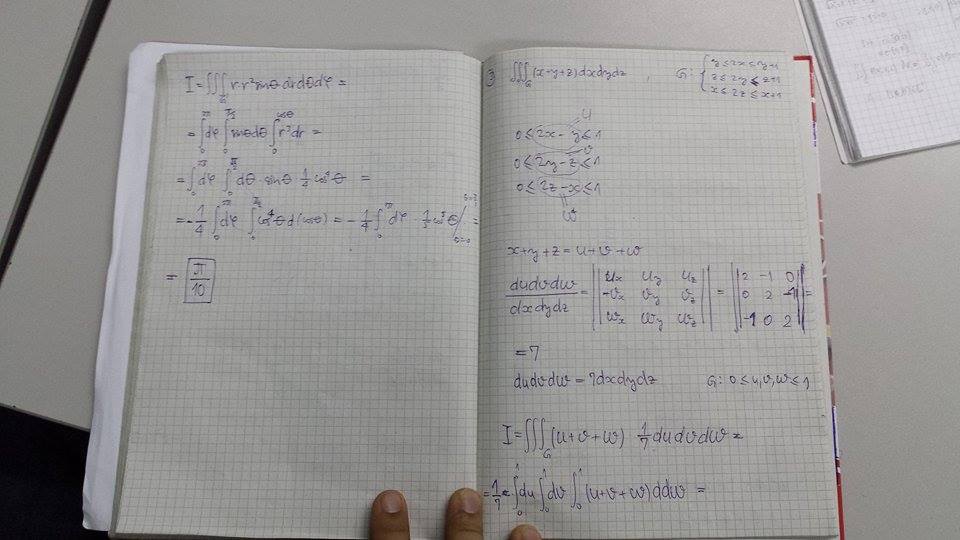 I = ∭_G r·r² sinθ dr dθ dφ =
= ∫_0^π dφ ∫_0^{π/2} sinθ dθ ∫_0^{cosθ} r³ dr =
= ∫_0^π dφ ∫_0^{π/2} dθ · sinθ 1/4 cos⁴θ =
= -1/4 ∫_0^π dφ ∫_0^{π/2} cos⁴θ d(cosθ) = -1/4 ∫_0^π dφ · 1/5 cos⁵θ |_{θ=0}^{θ=π/2} =
= π/10
3 ∭_G (x+y+z) dxdydz , G: { y ≤ 2x ≤ y+1
z ≤ 2y ≤ z+1
x ≤ 2z ≤ x+1
u
0 ≤ 2x - y ≤ 1
v
0 ≤ 2y - z ≤ 1
0 ≤ 2z - x ≤ 1
w
x+y+z = u+v+w
dudvdw/dxdydz = || u_x u_y u_z ; v_x v_y v_z ; w_x w_y w_z || = || 2 -1 0 ; 0 2 -1 ; -1 0 2 || =
= 7
dudvdw = 7dxdydz G: 0 ≤ u,v,w ≤ 1
I = ∭_G (u+v+w) 1/7 du dv dw =
= 1/7 ∫_0^1 du ∫_0^1 dv ∫_0^1 (u+v+w) ddw =